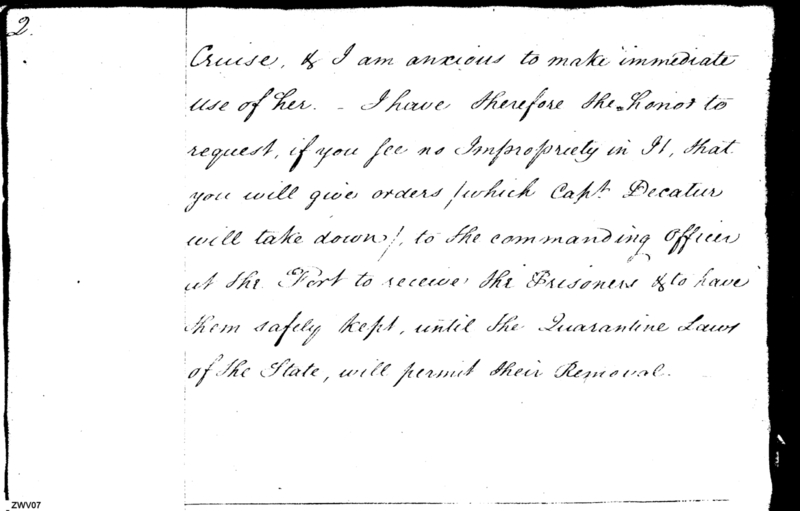 2.
Cruise, & I am anxious to make immediate
use of her. - I have therefore the honor to
request, if you see no Impropriety in It, that
you will give orders /which Capt. Decatur
will take down/, to the commanding Officer
at the Fort to receive the Prisoners & to have
them safely kept, until the Quarantine Laws
of the State, will permit their Removal.
ZWV07